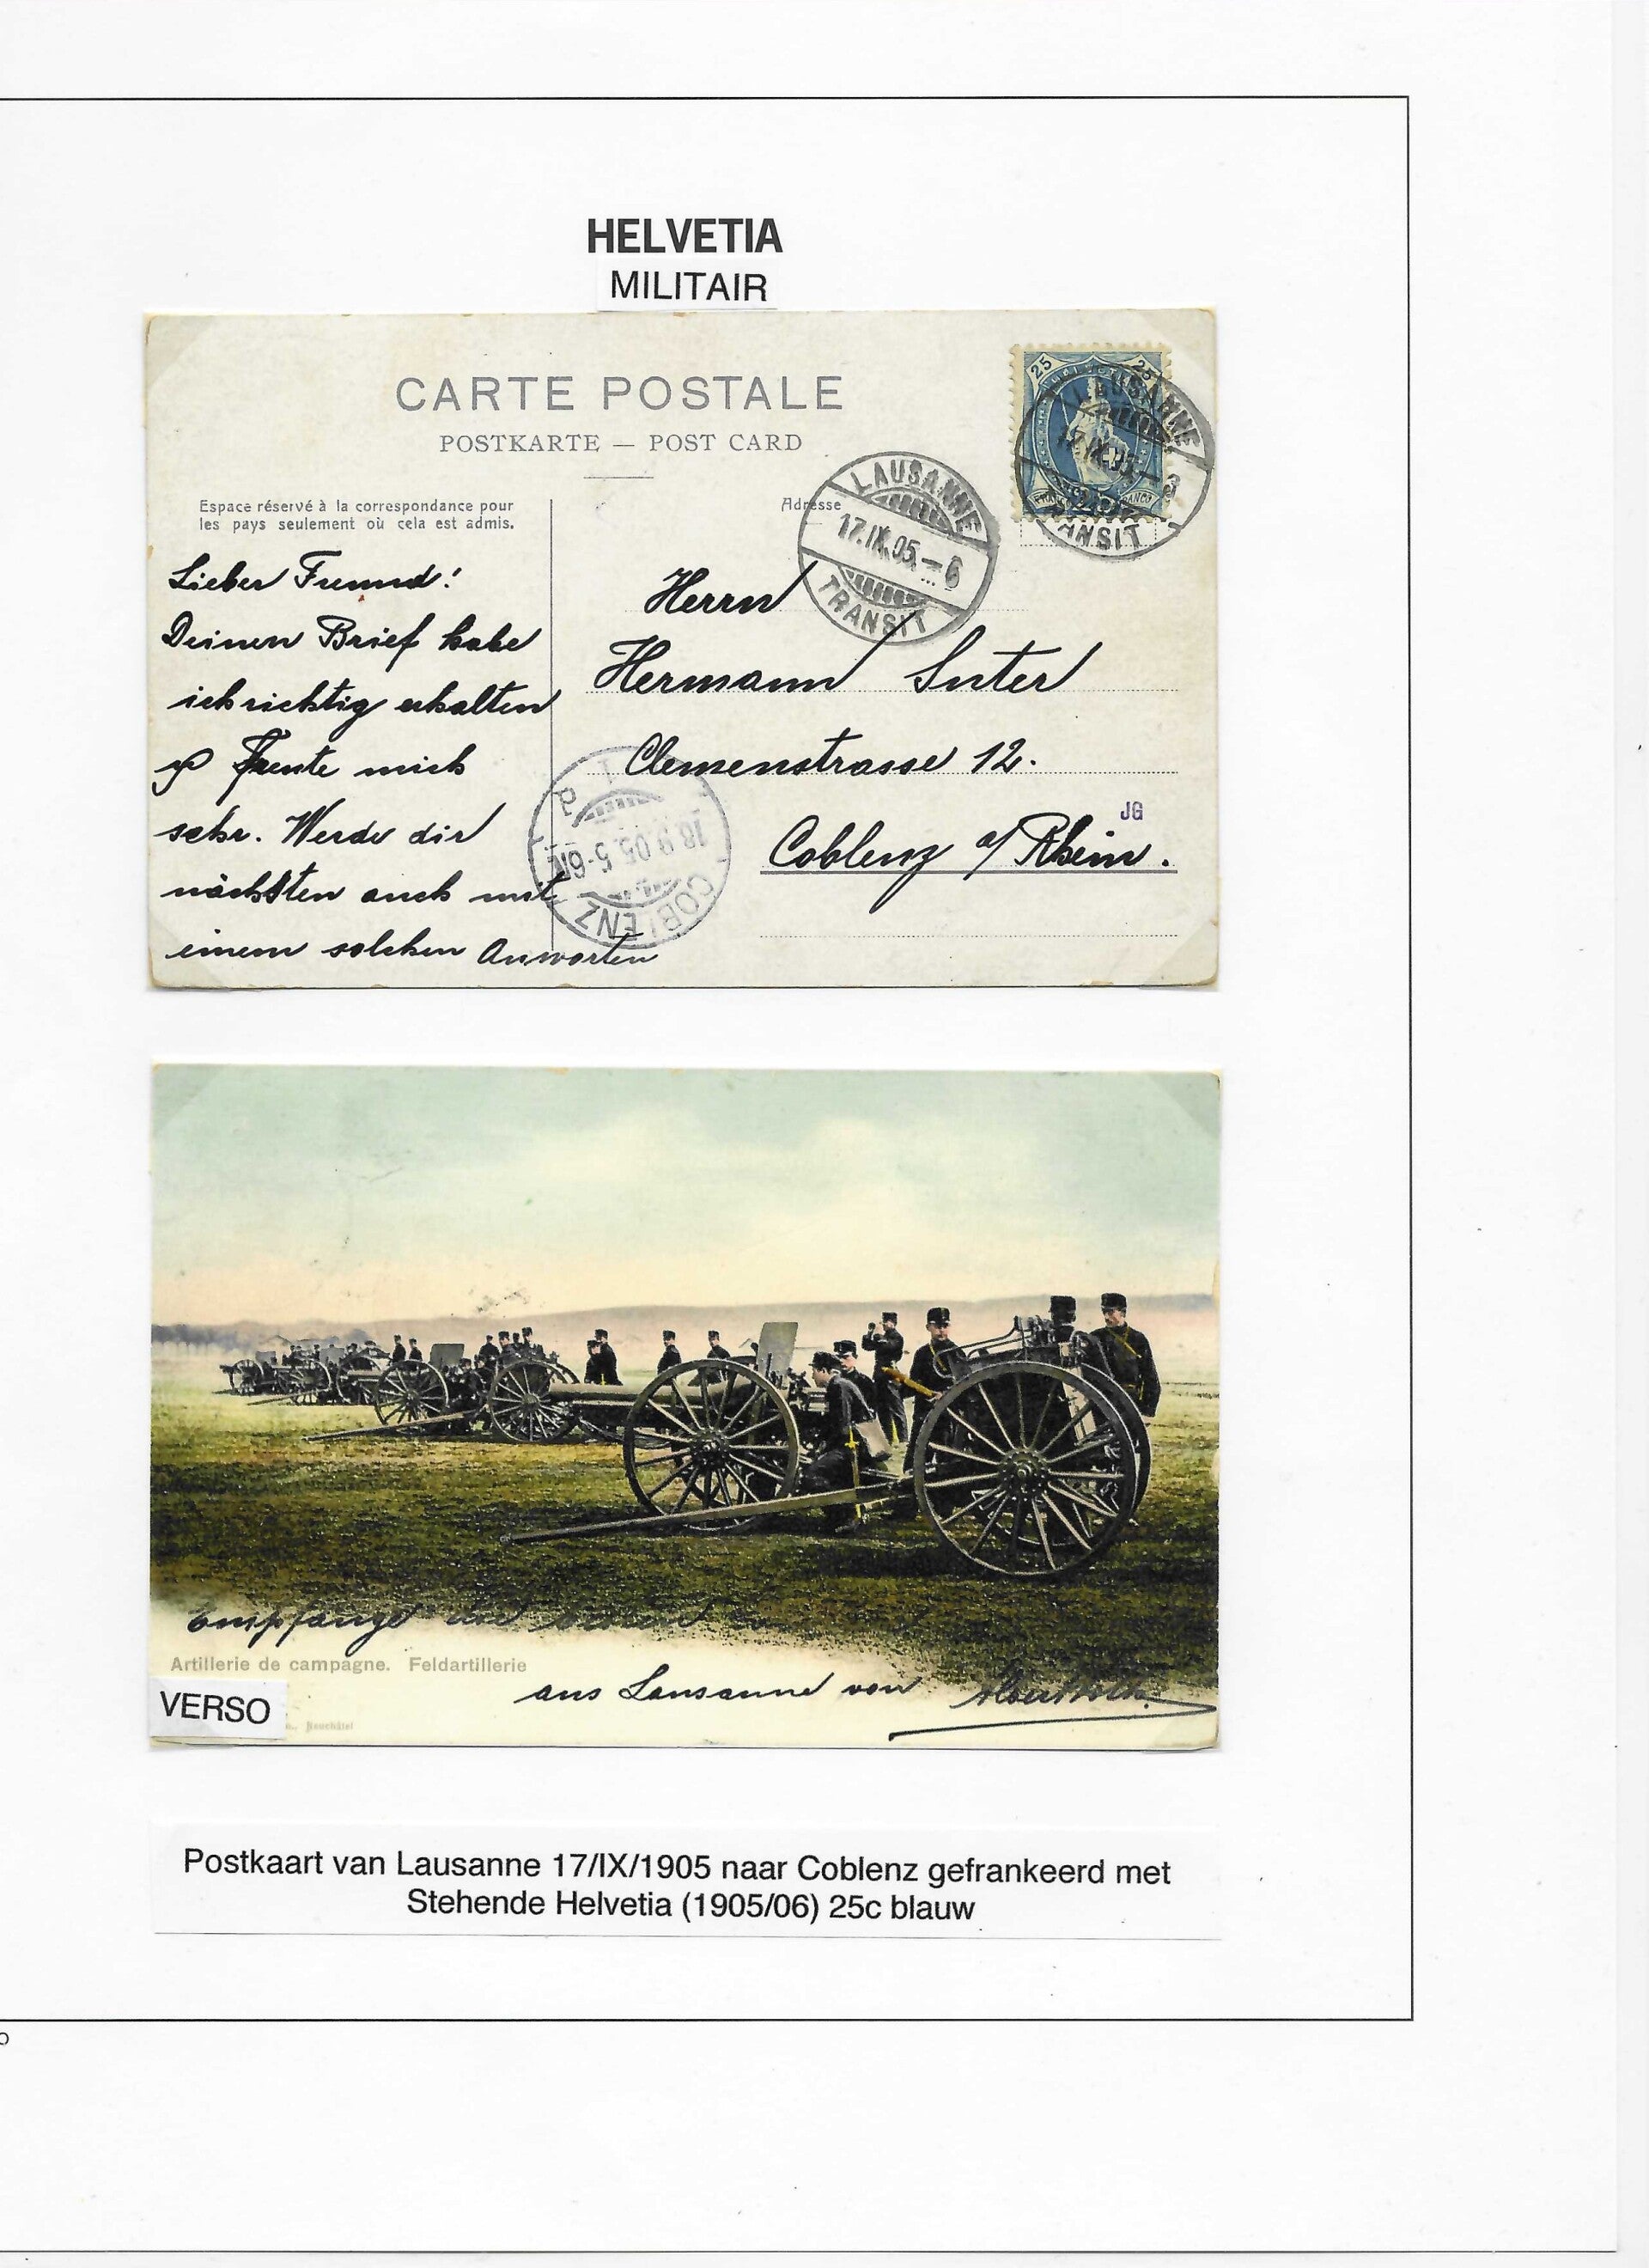 HELVETIA
MILITAIR
CARTE POSTALE
POSTKARTE — POST CARD
Espace réservé à la correspondance pour
les pays seulement où cela est admis.
Adresse
25 25
LAUSANNE
17.IX.05.
TRANSIT
LAUSANNE
17.IX.05.—6
TRANSIT
Lieber Freund!
Deinen Brief habe
ich richtig erhalten
freute mich
sehr. Werde dir
nächsten auch mit
einem solchen Anworten
Herrn
Hermann Suter
Clemenstrasse 12.
JG
Coblenz a/Rhein.
COBLENZ
18.9.05.5-6N
Empfange
Artillerie de campagne. Feldartillerie
aus Lausanne von
VERSO
Neuchâtel
Postkaart van Lausanne 17/IX/1905 naar Coblenz gefrankeerd met
Stehende Helvetia (1905/06) 25c blauw